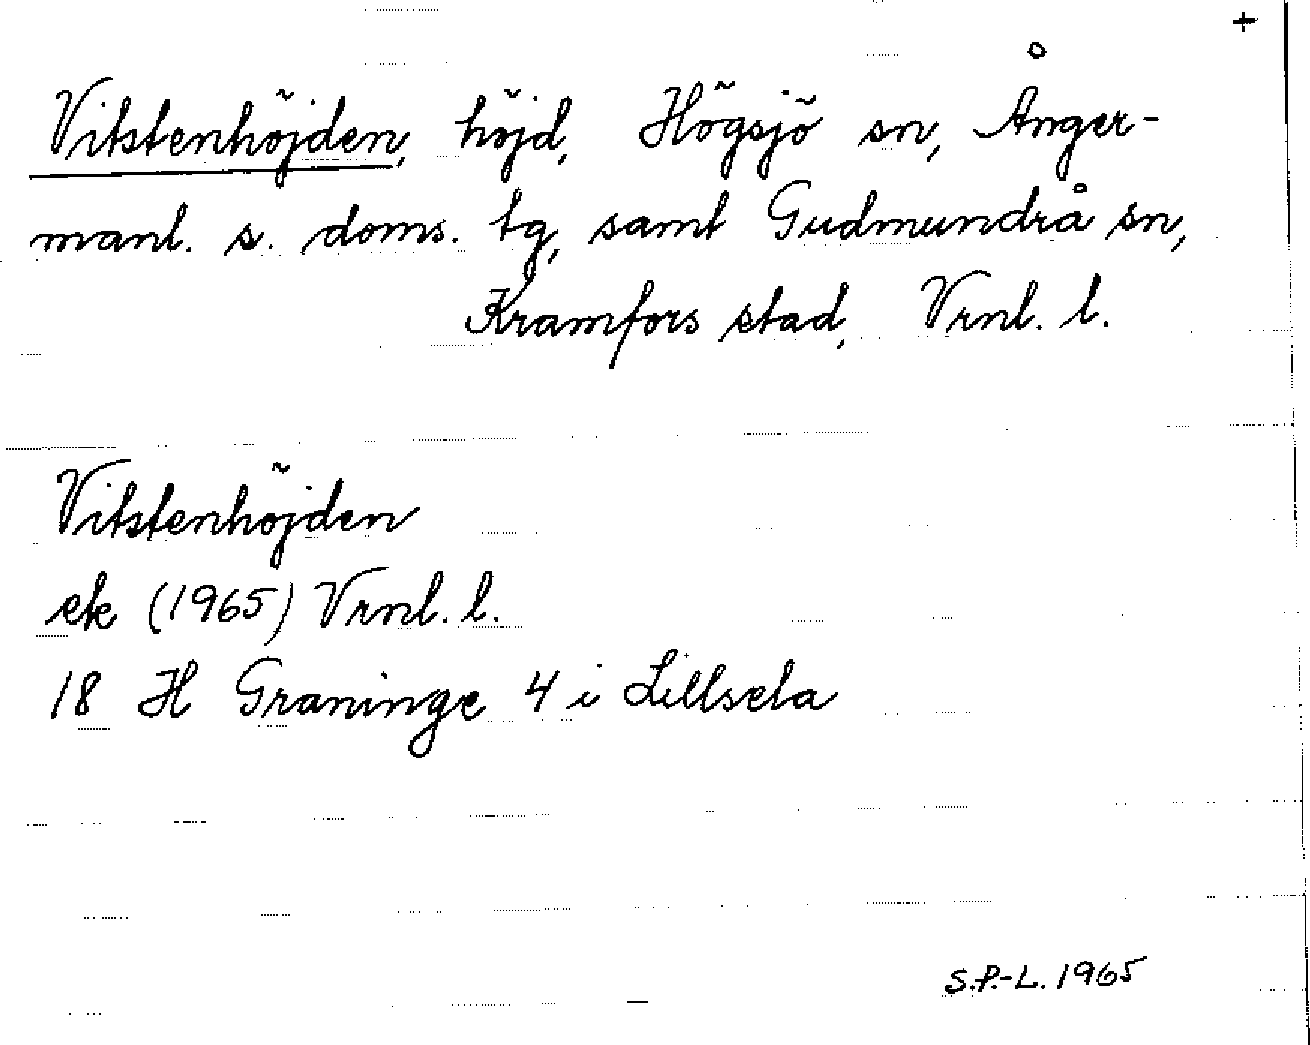 +
Vitstenhöjden, höjd, Högsjö sn, Ånger-
manl. s. doms. tg, samt Gudmundrå sn,
Kramfors stad, Vrnl. l.
Vitstenhöjden
ek (1965) Vrnl. l.
18 H Graninge 4 i Lillsela
S.P.-L. 1965